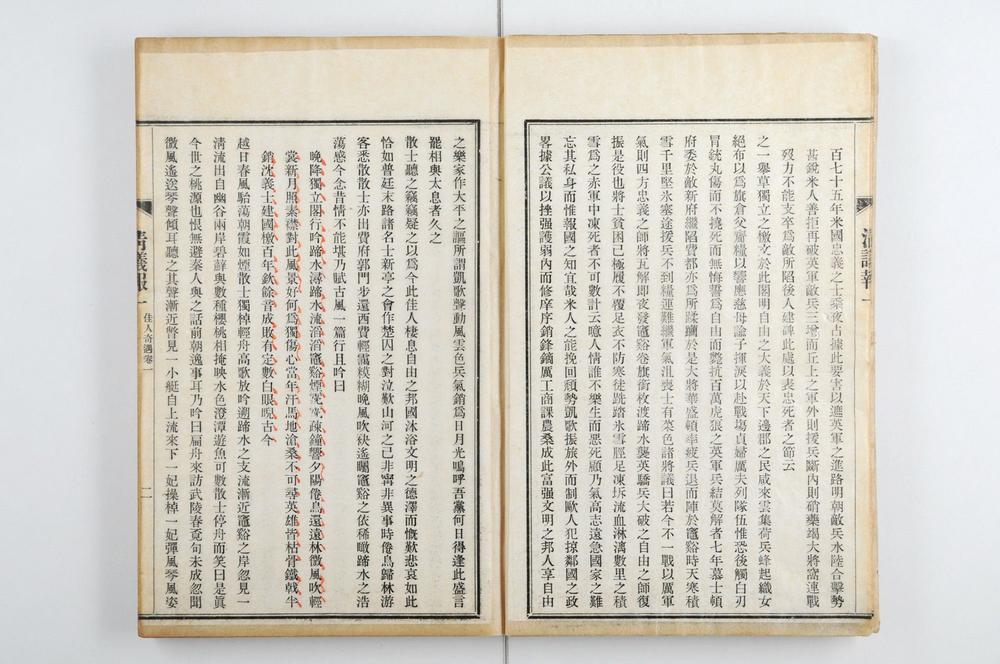 清議報一
百七十五年米國忠義之士乘夜占據此要害以遮英軍之進路明朝敵兵水陸合擊勢
甚銳米人善拒再破英軍敵兵三增而丘上之軍外則援兵斷內則硝藥竭大將窩連戰
歿力不能支卒爲敵所陷後人建碑此處以表忠死者之節云
之一舉草獨立之檄文於此閣明自由之大義於天下邊郡之民咸來雲集荷兵蜂起織女
絕布以爲旗倉父齎糧以饗應慈母諭子揮淚以赴戰場貞婦厲夫列隊伍惟恐後觸白刃
冒銃丸傷而不撓死而無悔誓爲自由而斃抗百萬虎狼之英軍兵結莫解者七年慕士頓
府委於敵新府繼陷費都亦爲所蹂躪於是大將華盛頓率疲兵退而陣於竈谿時天寒積
雪千里堅氷塞途援兵不到糧運難繼軍氣沮喪士有菜色諸將議曰若今不一戰以厲軍
氣則四方忠義之師將瓦解即夜發竈谿卷旗銜枚渡蹄水襲英驕兵大破之自由之師復
振是役也將士貧困已極履不覆足衣不防寒徒跣踏氷雪脛足凍坼流血淋漓數里之積
雪爲之赤軍中凍死者不可數計云噫人情誰不樂生而惡死顧乃氣高志遠急國家之難
忘其私身而惟報國之知宜哉米人之能挽回頽勢凱歌振旅外而制歐人犯掠鄰國之政
畧據公議以挫强護弱內而修庠序銷鋒鏑厲工商課農桑成此富强文明之邦人享自由
之樂家作大平之謳所謂凱歌聲動風雲色兵氣銷爲日月光嗚呼吾黨何日得逢此盛言
罷相與太息者久之
散士聽之竊竊疑之以爲今此佳人棲息自由之邦國沐浴文明之德澤而慨歎悲哀如此
恰如普廷末路諸名士新亭之會作楚囚之對泣歎山河之已非甯非異事時倦鳥歸林游
客悉散散士亦出費府郭門步還西費輕靄糢糊晚風吹袂遙矚竈谿之依稀瞰蹄水之浩
蕩感今念昔情不能堪乃賦古風一篇行且吟曰
晚降獨立閣行吟蹄水濤蹄水流滔滔竈谿煙寞寞疎鐘響夕陽倦鳥還遠林微風吹輕
裳新月照素襟對此風景好何爲獨傷心當年汗馬地滄桑不可尋英雄皆枯骨鐵戟半
銷沈義士建國檄百年欽餘音成敗有定數白眼睨古今
越日春風駘蕩朝霞如煙散士獨棹輕舟高歌放吟遡蹄水之支流漸近竈谿之岸忽見一
淸流出自幽谷兩岸碧蘚與數種櫻桃相掩映水色澄潭遊魚可數散士停舟而笑曰是眞
今世之桃源也恨無避秦人與之話前朝逸事耳乃吟曰扁舟來訪武陵春竟句未成忽聞
微風遙送琴聲傾耳聽之其聲漸近瞥見一小艇自上流來下一妃操棹一妃彈風琴風姿
清議報一
佳人奇遇卷一
二